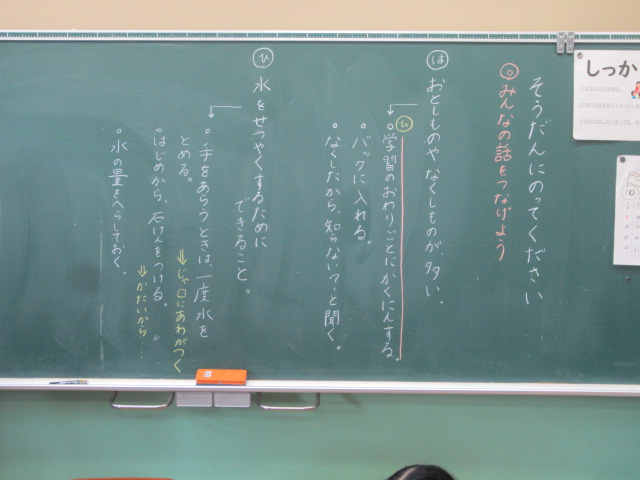 そうだんにのってください
◎みんなの話をつなげよう
は おとしものやなくしものが、多い。
ひ
○学習のおわりごとにかくにんする。
○バックに入れる。
○なくしたから、知らない？と聞く。
ひ 水をせつやくするために
できること。
○手をあらうときは、一度水を
とめる。
⇒じゃ口にあわがつく
○はじめから、石けんをつける。
⇒かたいから…
○水の量をへらしておく。
しっか